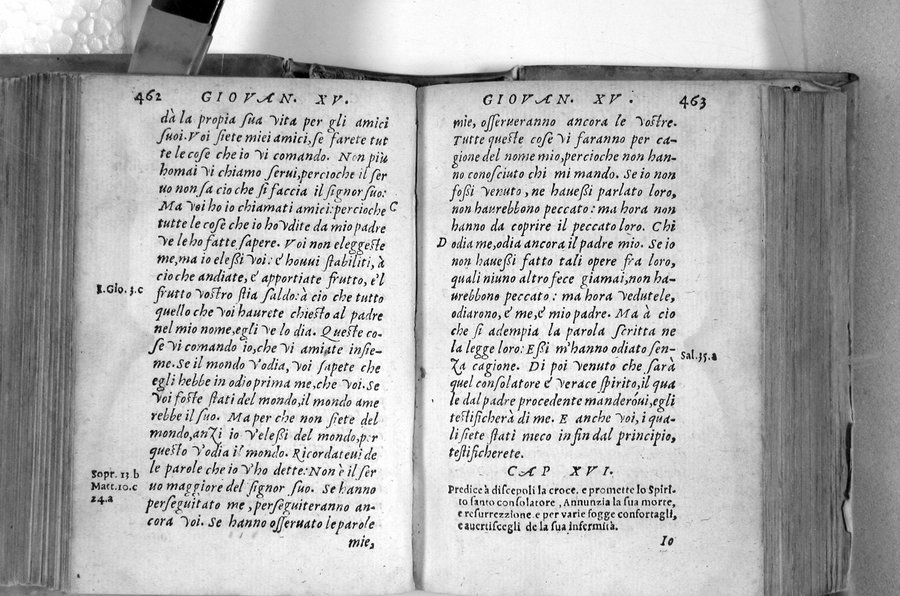 462 GIOVAN. XV.
dà la propia sua vita per gli amici
suoi. Voi siete miei amici, se farete tut
te le cose che io vi comando. Non più
homai vi chiamo serui, percioche il ser
uo non sa cio che si faccia il signor suo:
Ma voi ho io chiamati amici: percioche C
tutte le cose che io ho vdite da mio padre
ve le ho fatte sapere. Voi non eleggeste
me, ma io eleßi voi: e houui stabiliti, à
cio che andiate, e' apportiate frutto, e'l
I. Gio. 3. c frutto vostro stia saldo: à cio che tutto
quello che voi haurete chiesto al padre
nel mio nome, egli ve lo dia. Queste co-
se vi comando io, che vi amiate insie-
me. Se il mondo v'odia, voi sapete che
egli hebbe in odio prima me, che voi. Se
voi foste stati del mondo, il mondo ame
rebbe il suo. Ma per che non siete del
mondo, anzi io v'eleßi del mondo, per
questo v'odia il mondo. Ricordateui de
Sopr. 13. b le parole che io v'ho dette: Non è il ser
Matt. 10. c uo maggiore del signor suo. Se hanno
24. a perseguitato me, perseguiteranno an-
cora voi. Se hanno osseruato le parole
mie,
GIOVAN. XV. 463
mie, osserueranno ancora le vostre.
Tutte queste cose vi faranno per ca-
gione del nome mio, percioche non han-
no conosciuto chi mi mando. Se io non
foßi venuto, ne haueßi parlato loro,
non haurebbono peccato: ma hora non
hanno da coprire il peccato loro. Chi
D odia me, odia ancora il padre mio. Se io
non haueßi fatto tali opere fra loro,
quali niuno altro fece giamai, non ha-
urebbono peccato: ma hora vedutele,
odiarono, e' me, e' mio padre. Ma à cio
che si adempia la parola scritta ne
la legge loro: Eßi m'hanno odiato sen- Sal. 35. a
za cagione. Di poi venuto che sarà
quel consolatore e' verace spirito, il qua
le dal padre procedente manderoui, egli
testificherà di me. E anche voi, i qua-
li siete stati meco infin dal principio,
testificherete.
CAP XVI.
Predice à discepoli la croce, e promette lo Spiri-
to santo consolatore, Annunzia la sua morte,
e resurrezzione, e per varie fogge confortagli,
e auertiscegli de la sua infermità.
Io